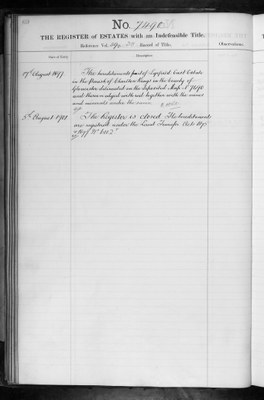 No. 7490
THE REGISTER of ESTATES with an Indefeasible Title.
Reference Vol. Record of Title.
Observations.
Date of Entry
Description
17th August 1877
The hereditaments part of Lydford East Estate
in the Parish of Charlton Kings in the County of
Gloucester delineated in the deposited Map No 7490
and thereon edged with red together with the mines
and minerals under the same
5th August 1902
The Register is closed The hereditaments
are registered under the Land Transfer Acts 1875